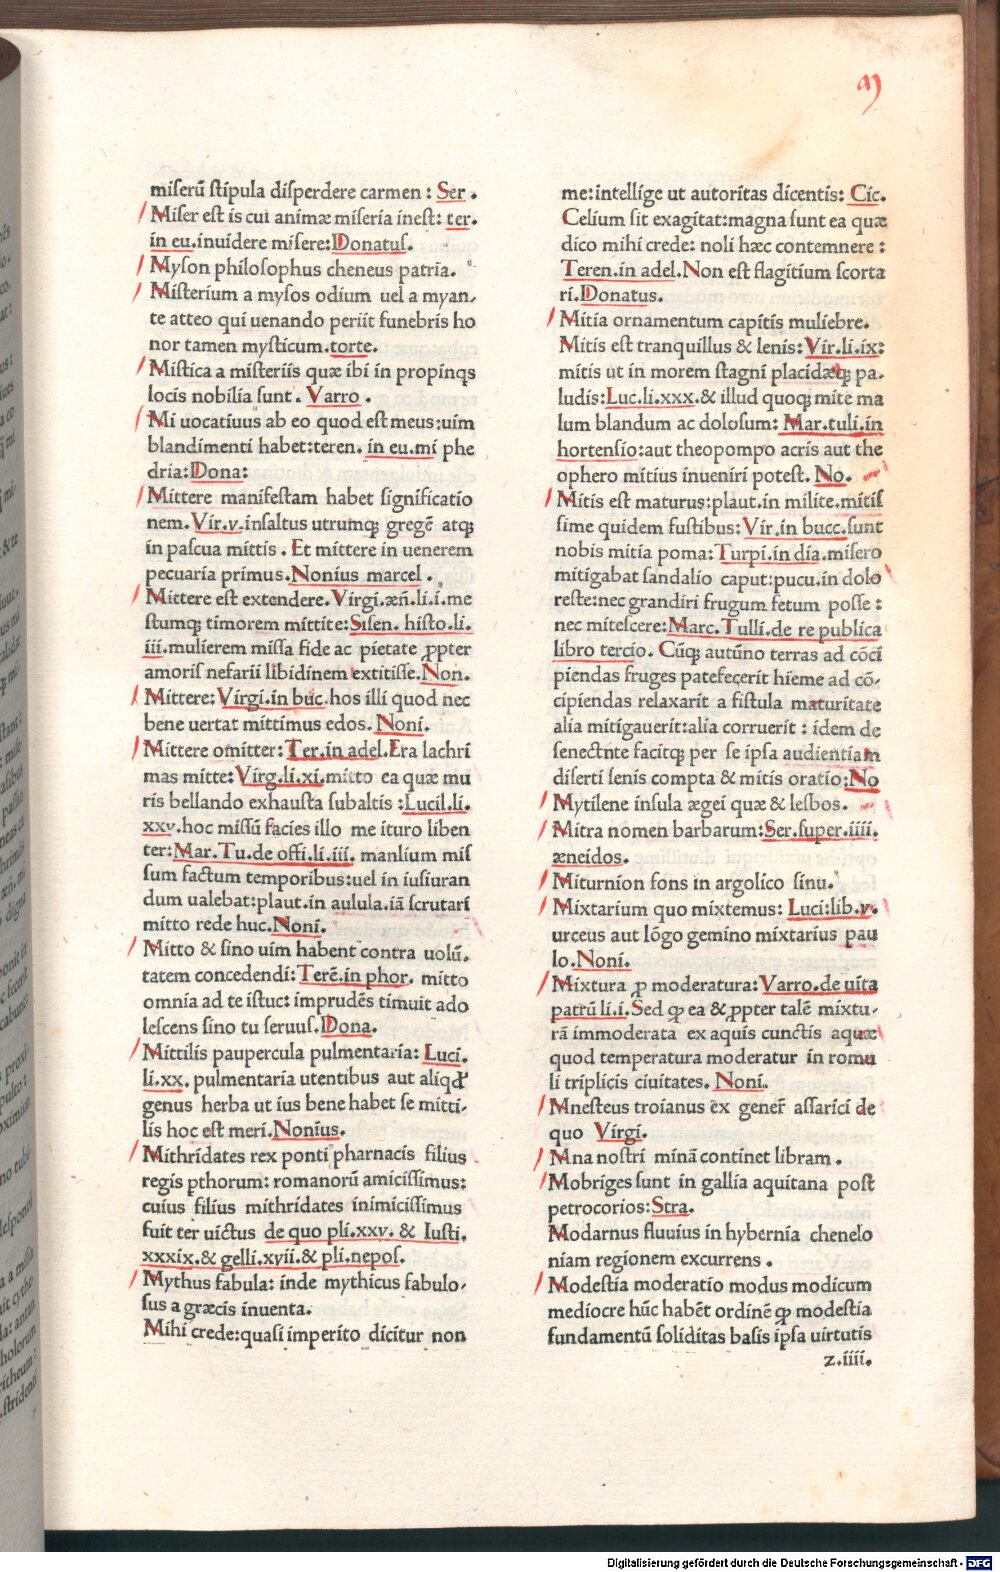 M
miserū stipula disperdere carmen : Ser .
Miser est is cui animæ miseria inest: ter.
in eu.inuidere misere:Donatus.
Myson philosophus cheneus patria.
Misterium a mysos odium uel a myan,
te atteo qui uenando periit funebris ho
nor tamen mysticum.torte.
Mistica a misteriis quæ ibi in propinqs
locis nobilia sunt . Varro .
Mi uocatiuus ab eo quod est meus:uim
blandimenti habet:teren. in eu.mi phe
dria:Dona:
Mittere manifestam habet significatio
nem.Vir.v.insaltus utrumqꝫ gregē atqꝫ
in pascua mittis . Et mittere in uenerem
pecuaria primus.Nonius marcel .
Mittere est extendere.Virgi.æn̄.li.i.me
stumqꝫ timorem mittite:Sisen. histo.li.
iii.mulierem missa fide ac pietate ꝓpter
amoris nefarii libidinem extitisse.Non.
Mittere: Virgi.in buc.hos illi quod nec
bene uertat mittimus edos. Noni.
Mittere omitter: Ter.in adel.Era lachri
mas mitte: Virg.li.xi.mitto ea quæ mu
ris bellando exhausta subaltis :Lucil.li.
xxv.hoc missū facies illo me ituro liben
ter:Mar.Tu.de offi.li.iii. manlium mis
sum factum temporibus:uel in iusiuran
dum ualebat:plaut.in aulula.iā scrutari
mitto rede huc.Noni.
Mitto & sino uim habent contra uolū.
tatem concedendi: Terē.in phor. mitto
omnia ad te istuc: imprudēs timuit ado
lescens sino tu seruus.Dona.
Mittilis paupercula pulmentaria: Luci.
li.xx. pulmentaria utentibus aut aliqđ
genus herba ut ius bene habet se mitti,
lis hoc est meri.Nonius.
Mithridates rex ponti pharnacis filius
regis pthorum: romanorū amicissimus:
cuius filius mithridates inimicissimus
fuit ter uictus de quo pli.xxv. & Iusti.
xxxix.& gelli.xvii.& pli.nepos.
Mythus fabula: inde mythicus fabulo,
sus a græcis inuenta.
Mihi crede:quasi imperito dicitur non
me:intellige ut autoritas dicentis: Cic.
Celium sit exagitat:magna sunt ea quæ
dico mihi crede: noli hæc contemnere :
Teren.in adel.Non est flagitium scorta
ri.Donatus.
Mitia ornamentum capitis muliebre.
Mitis est tranquillus & lenis: Vir.li.ix:
mitis ut in morem stagni placidæqꝫ pa,
ludis:Luc.li.xxx.& illud quoqꝫ mite ma
lum blandum ac dolosum: Mar.tuli.in
hortensio:aut theopompo acris aut the
ophero mitius inueniri potest. No.
Mitis est maturus:plaut.in milite.mitis
sime quidem fustibus: Vir.in bucc.sunt
nobis mitia poma: Turpi.in dia.misero
mitigabat sandalio caput:pucu.in dolo
reste:nec grandiri frugum fetum posse :
nec mitescere:Marc.Tulli.de re publica
libro tercio. Cūqꝫ autūno terras ad cōci
piendas fruges patefecerit hieme ad cō,
cipiendas relaxarit a fistula maturitate
alia mitigauerit:alia corruerit : idem de
senectnte facitqꝫ per se ipsa audientiam
diserti senis compta & mitis oratio:No
Mytilene insula ægei quæ & lesbos.
Mitra nomen barbarum:Ser.super.iiii.
æneidos.
Miturnion fons in argolico sinu.
Mixtarium quo mixtemus: Luci:lib.v.
urceus aut lōgo gemino mixtarius pau
lo.Noni.
Mixtura ꝓ moderatura: Varro.de uita
patrū li.i.Sed ꝙ ea & ꝓpter talē mixtu,
rā immoderata ex aquis cunctis aquæ
quod temperatura moderatur in romu
li triplicis ciuitates. Noni.
Mnesteus troianus ex gener̄ assarici de
quo Virgi.
Mna nostri minā continet libram .
Mobriges sunt in gallia aquitana post
petrocorios: Stra.
Modarnus fluuius in hybernia chenelo
niam regionem excurrens .
Modestia moderatio modus modicum
mediocre hūc habēt ordinē ꝙ modestia
fundamentū soliditas basis ipsa uirtutis
z.iiii.
Digitalisierung gefördert durch die Deutsche Forschungsgemeinschaft - DFG